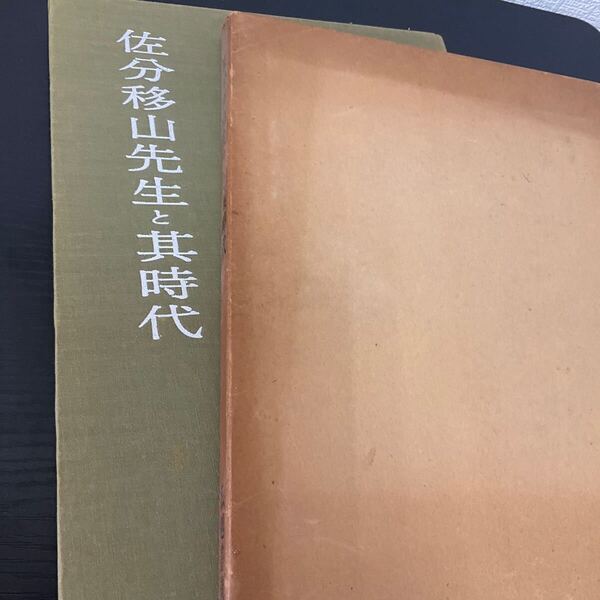 佐分移山先生と其時代